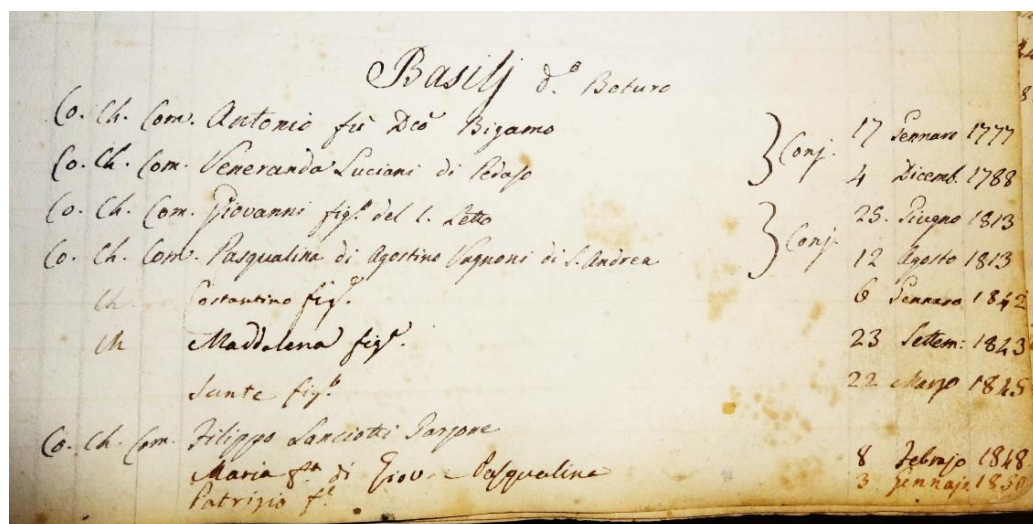 Basilj d.º Boturo
Co. Ch. Com. Antonio fù Dcõ Bigamo } Conj. 17 Gennaro 1777
Co. Ch. Com. Veneranda Luciani di Pedaso 4 Dicemb. 1788
Co. Ch. Com. Giovanni fig.º del 1. Letto } Conj. 25. Giugno 1813
Co. Ch. Com. Pasqualina di Agostino Vagnoni di S. Andrea 12 Agosto 1813
Ch. Costantino fig.º 6 Gennaro 1842
Ch Maddalena fig.ª 23 Settem: 1843
Sante fig.º 22 Marzo 1845
Co. Ch. Com. Filippo Lanciotti Garzone
Maria f.ª di Giov. e Pasqualina 8 Febrajo 1848
Patrizio f.º 3 Gennajo 1850